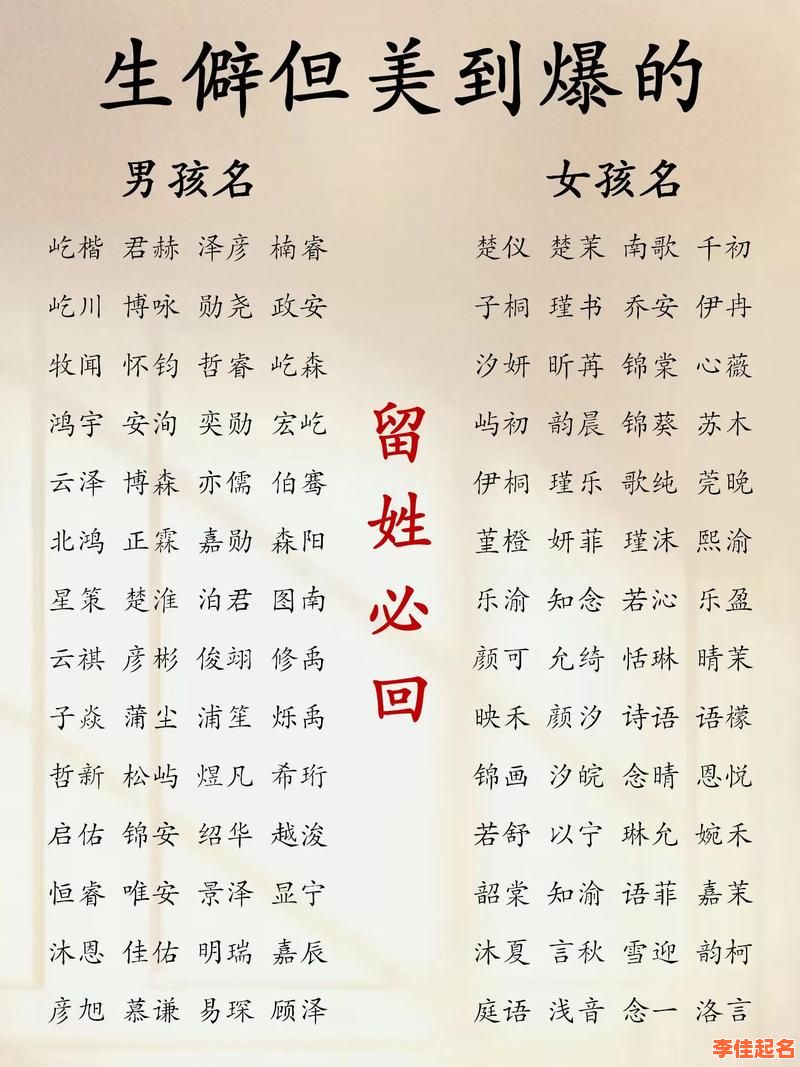 生僻但美到爆的
男孩名
屹楷 君赫 泽彦 楠睿
屹川 博咏 勋尧 政安
牧闻 怀钧 哲睿 屹森
鸿宇 安洵 奕勋 宏屹
云泽 博森 亦儒 伯骞
北鸿 正霖 嘉勋 森阳
星策 楚淮 泊君 图南
云祺 彦彬 俊翊 修禹
子焱 蒲尘 浦笙 烁禹
哲新 松屿 煜凡 希珩
启佑 锦安 绍华 越浚
恒睿 唯安 景泽 显宁
沐恩 佳佑 明瑞 嘉辰
彦旭 慕谦 易琛 顾泽
留姓必回
女孩名
楚仪 楚茉 南歌 千初
子桐 瑾书 乔安 伊冉
汐妍 昕苒 锦棠 心薇
屿初 韵晨 锦葵 苏木
伊桐 瑾乐 歌纯 莞晚
堇橙 妍菲 瑾沫 熙渝
乐渝 知念 若沁 乐盈
颜可 允绮 恬琳 晴茉
映禾 颜汐 诗语 语檬
锦画 汐皖 念晴 恩悦
若舒 以宁 琳允 婉禾
韶棠 知渝 语菲 嘉茉
沐夏 言秋 雪迎 韵柯
庭语 浅音 念一 洛言
李佳起名